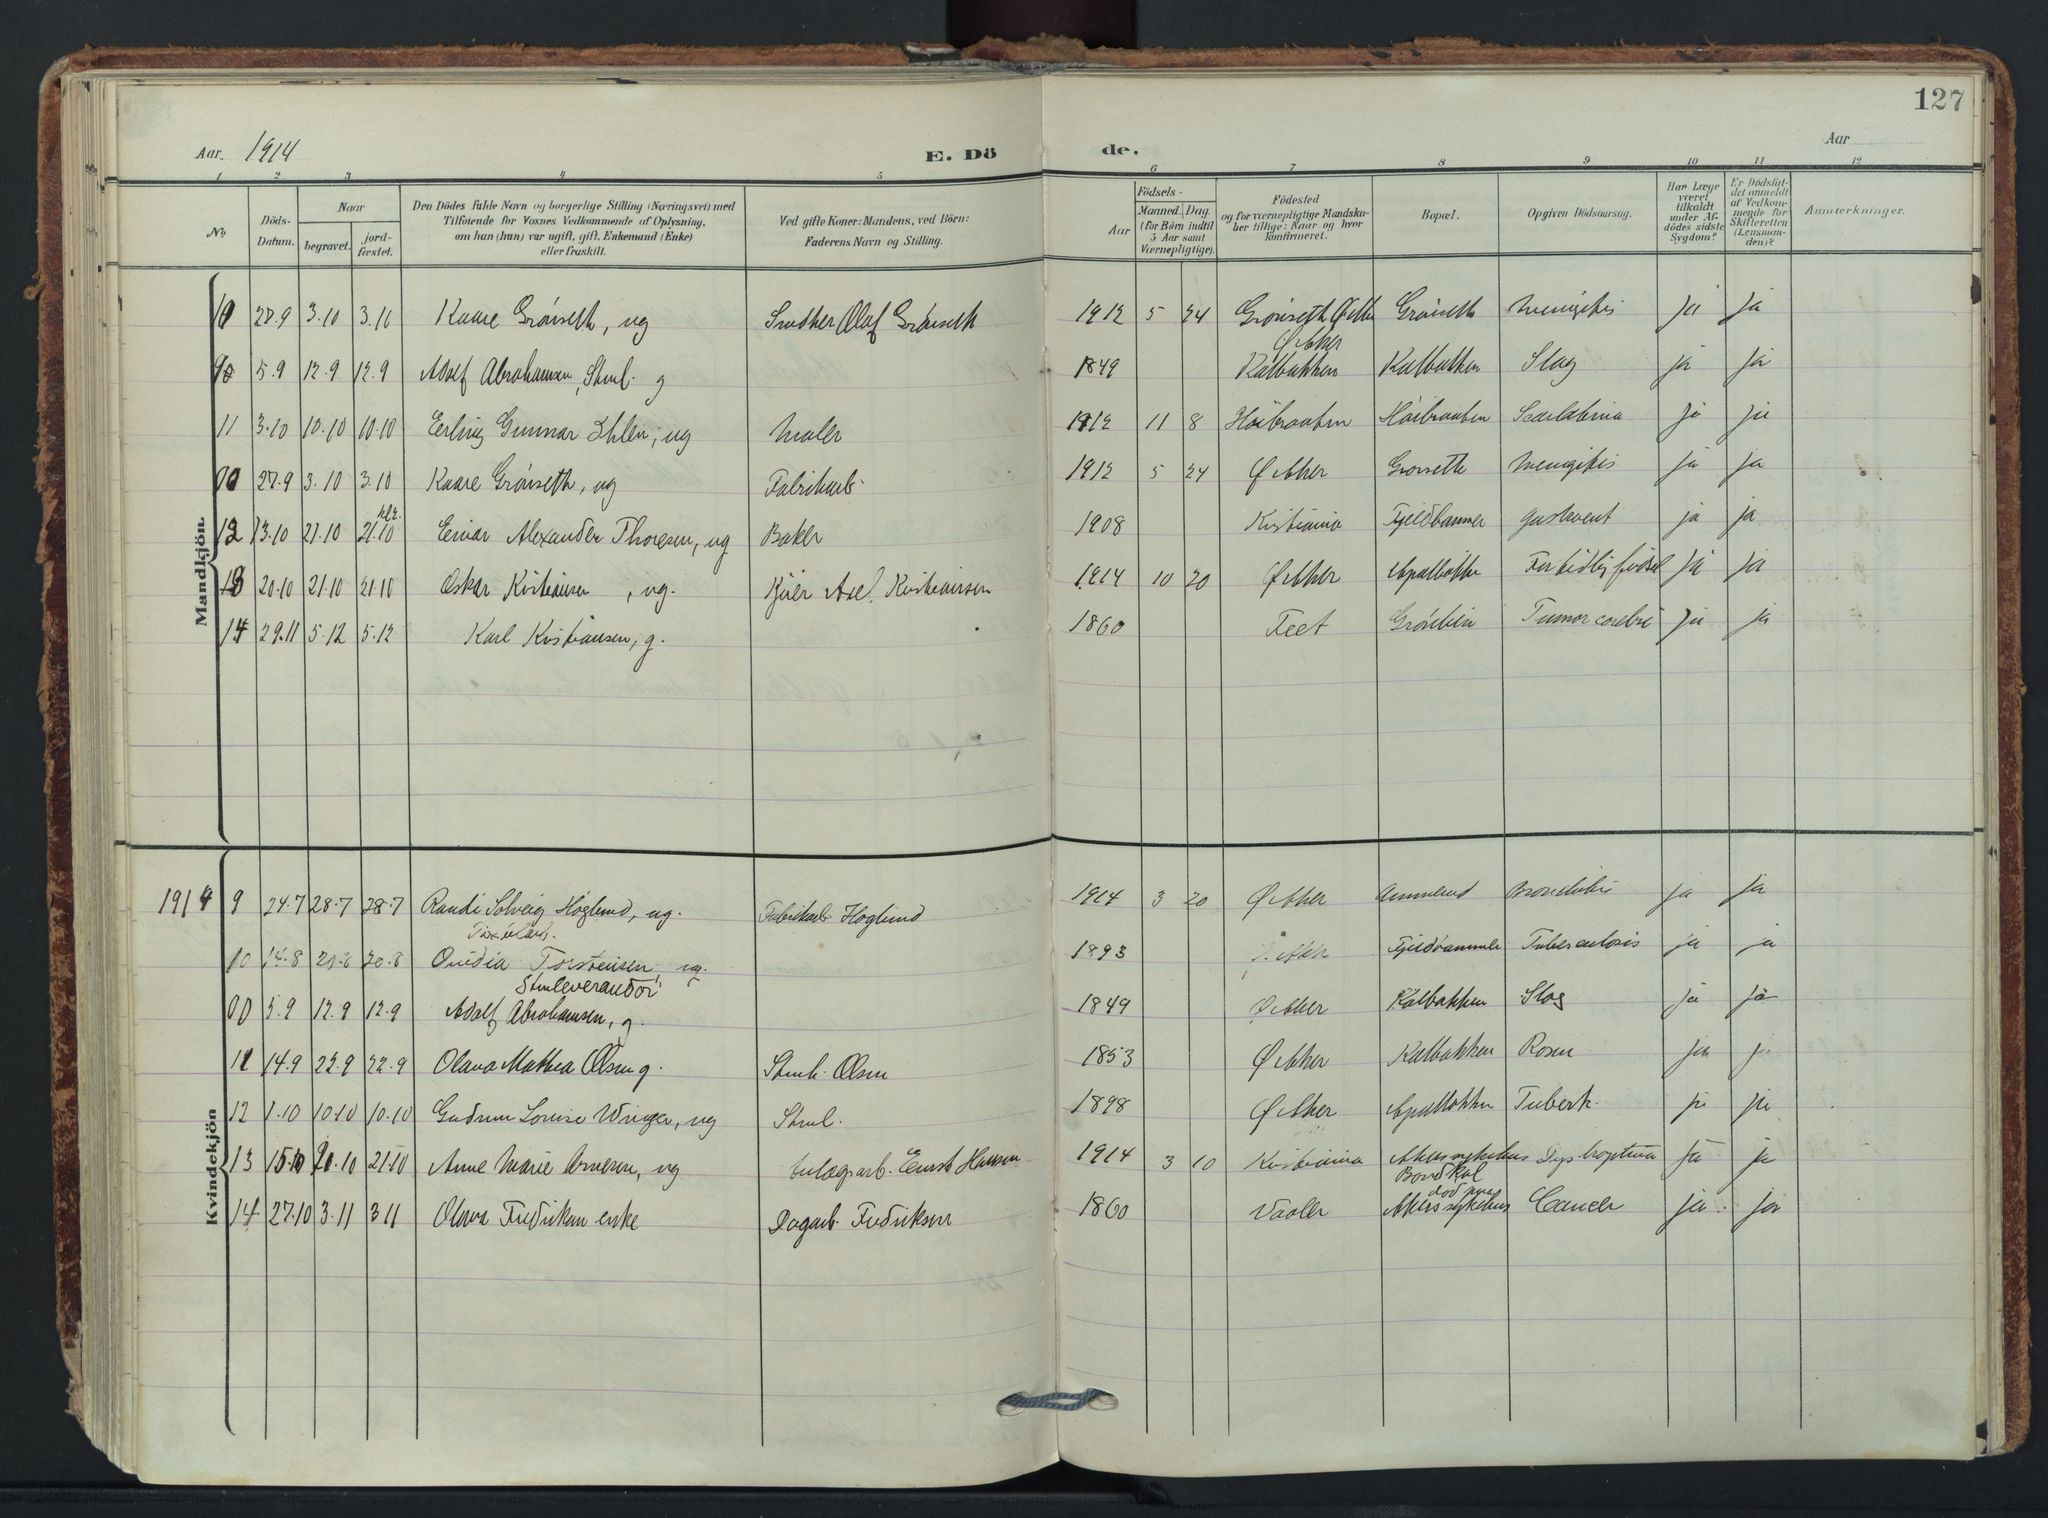 127
Aar 1914 E. Dö de. Aar
1 2 3 4 5 6 7 8 9 10 11 12
No
Döds-Datum.
Naar
begravet.
jord-fæstet.
Den Dödes fulde Navn og borgerlige Stilling (Næringsvei) med
Tilföiende for Voxnes Vedkommende af Oplysning,
om han (hun) var ugift, gift, Enkemand (Enke)
eller fraskilt.
Ved gifte Koner: Mandens, ved Börn:
Faderens Navn og Stilling.
Födsels-
Aar Maaned. Dag.
(for Börn indtil
5 Aar samt
Værnepligtige).
Födested
og for værnepligtige Mandska-
ber tillige: Naar og hvor
konfirmeret.
Bopæl.
Opgiven Dödsaarsag.
Har Læge
været
tilkaldt
under Af-
dödes sidste
Sygdom?
Er Dödsfal-
det anmeldt
af Vedkom-
mende for
Skifteretten
(Lensman-
den)?
Anmærkninger.
Mandkjön.
10 27.9 3.10 3.10 Kaare Grönseth, ug Snedker Olaf Grönseth 1912 5 24 Grönseth Ø Aker Grönseth Meningitis ja ja
Ø Aker
5.9 12.9 12.9 Adolf Abrahamsen, Stenl. g 1849 Kalbakken Kalbakken Slag ja ja
11 3.10 10.10 10.10 Erling Gunnar Ihlen, ug Maler 1912 11 8 Höibraaten Höibraaten Scarlatina ja ja
27.9 3.10 3.10 Kaare Grönseth, ug Fabrikarb. 1912 5 24 Ø Aker Grönseth Meningitis ja ja
12 13.10 21.10 21.10 Einar Alexander Thoresen, ug Baker 1908 Kristiania Fjeldhammer ja ja
13 20.10 21.10 21.10 Oskar Kristiansen, ug. Kjörer Axel Kristiansen 1914 10 20 Ø Aker Apalløkka For tidlig födsel ja ja
14 29.11 5.12 5.12 Karl Kristiansen, g. 1860 Feet Tumor cerebri ja ja
Kvindekjön
1914 9 24.7 28.7 28.7 Randi Solveig Höglund, ug. Fabrikarb. Høglund 1914 3 20 Ø Aker Ammerud Bronchitis ja ja
10 14.8 20.8 20.8 Ovidia Torstensen, ug. 1893 Ø. Aker Fjeldhammer Tuberculosis ja ja
Stenleverandör
5.9 12.9 12.9 Adolf Abrahamsen, g. 1849 Ø Aker Kalbakken Slag ja ja
11 14.9 22.9 22.9 Olava Mathea Olsen g. Stenh. Olsen 1853 Ø Aker Kalbakken Rosen ja ja
12 1.10 10.10 10.10 Gudrun Lovise Winger, ug Stenh. 1898 Ø Aker Apalløkken Tuberk. ja ja
13 15.10 20.10 21.10 Anne Marie Arnesen, ug Anlægsarb. Ernst Hansen 1914 3 10 Kristiania Akers sykehus ja ja
14 27.10 3.11 3.11 Olava Fredriksen enke Dagarb. Fredriksen 1860 Vaaler död paa Akers sykehus Cancer ja ja